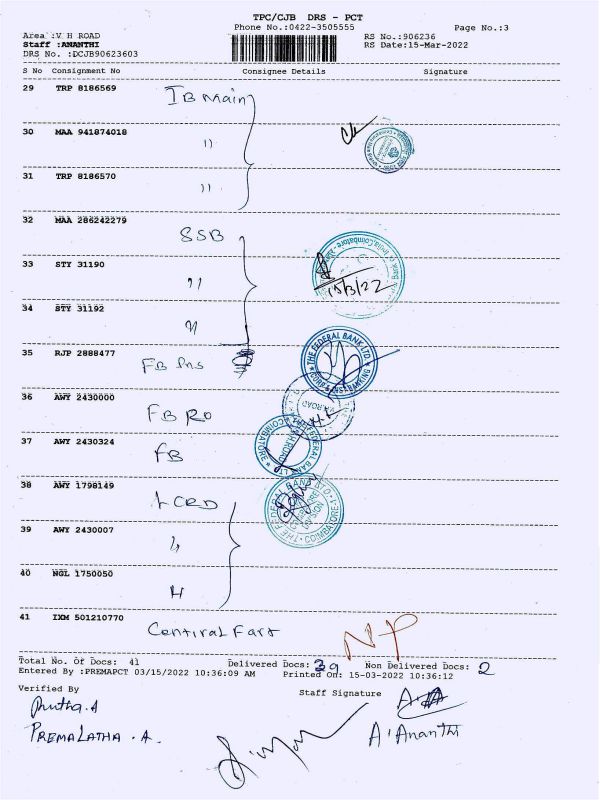 TPC/CJB DRS - PCT
Phone No.:0422-3505555 Page No.:3
Area :V H ROAD RS No.:906236
Staff :ANANTHI RS Date:15-Mar-2022
DRS No. :DCJB90623603
S No Consignment No Consignee Details Signature
29 TRP 8186569 IB Main
30 MAA 941874018 "
31 TRP 8186570 "
32 MAA 286242279 SSB
33 STY 31190 "
15/3/22
34 STY 31192 "
35 RJP 2888477 FB Ins
THE FEDERAL BANK LTD.
36 AWY 2430000 FB RO
37 AWY 2430324 FB
COIMBATORE
38 AWY 1798149 LCRD
THE FEDERAL BANK LTD
COIMBATORE
DIVISION
39 AWY 2430007 "
40 NGL 1750050 "
41 IXM 501210770 NP
Total No. Of Docs: 41 Delivered Docs: 39 Non Delivered Docs: 2
Entered By :PREMAPCT 03/15/2022 10:36:09 AM Printed On: 15-03-2022 10:36:12
Verified By Staff Signature
PREMALATHA . A. A. Ananthi